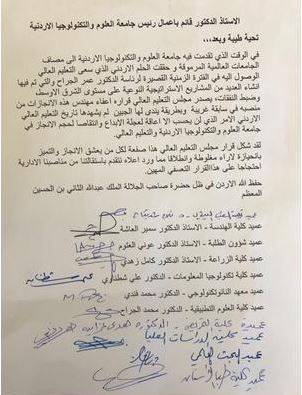 الاستاذ الدكتور قائم باعمال رئيس جامعة العلوم والتكنولوجيا الاردنية
تحية طيبة وبعد،،،
في الوقت الذي تقدمت فيه جامعة العلوم والتكنولوجيا الاردنية الى مصاف
الجامعات العالمية المرموقة و حققت الحلم الاردني الذي سعى التعليم العالي
الوصول اليه في الفترة الزمنية القصيرة لرئاسة الدكتور عمر الجراح والتي تم فيها
انشاء العديد من المشاريع الاستراتيجية النوعية على مستوى الشرق الاوسط
وضبط النفقات، يصدر مجلس التعليم العالي قراره اعفاء مهندس هذه الانجازات من
منصبه في سابقة غريبة وبطريقة يندى لها الجبين لم يشهدها تاريخ التعليم
الاردني الامر الذي لن يحسب الا اعاقة لعجلة الابداع وانتقاصا لحجم الانجاز في
جامعة العلوم والتكنولوجيا الاردنية والتعليم العالي.
لقد شكل قرار مجلس التعليم العالي هذا صفعة لكل من يعشق الانجاز والتميز
بانحيازة لاراء مغلوطة وانطلاقا مما ورد اعلاه نتقدم باستقالتنا من مناصبنا الادارية
احتجاجا على هذا القرار التعسفي المهين.
حفظ الله الاردن في ظل حضرة صاحب الجلالة الملك عبدالله الثاني بن الحسين
المعظم
عميد كلية الهندسة - الاستاذ الدكتور سمير العاشة
عميد شؤون الطلبة - الاستاذ الدكتور عوني العلوم
عميد كلية الزراعة - الاستاذ الدكتور كامل زهدي
عميد كلية تكنولوجيا المعلومات - الدكتور علي شطناوي
عميد معهد النانوتكنولوجي - الدكتور محمد فندي
عميد كلية العلوم التطبيقية - الدكتور محمد الجراح
عميدة كلية التمريض - الدكتورة
عميد كلية الدراسات العليا
عميد البحث العلمي
عميد كلية طب الأسنان